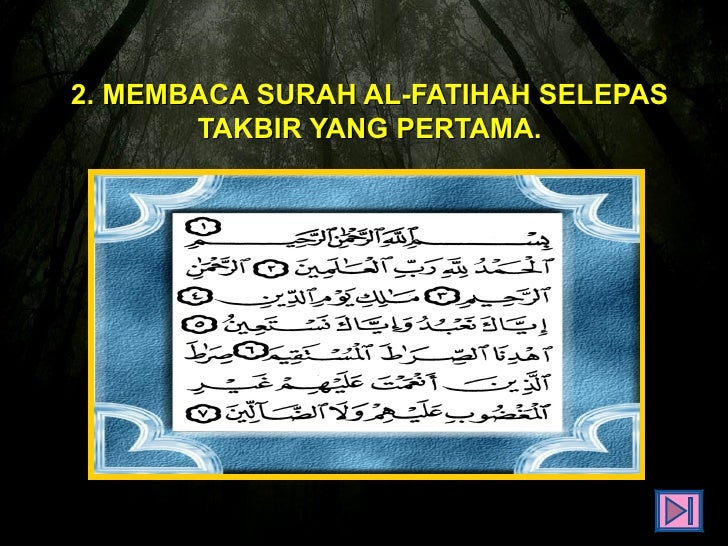 2. MEMBACA SURAH AL-FATIHAH SELEPAS
TAKBIR YANG PERTAMA.
بِسْمِ اللَّهِ الرَّحْمَٰنِ الرَّحِيمِ ١
الْحَمْدُ لِلَّهِ رَبِّ الْعَالَمِينَ ٢ الرَّحْمَٰنِ
الرَّحِيمِ ٣ مَالِكِ يَوْمِ الدِّينِ ٤
إِيَّاكَ نَعْبُدُ وَإِيَّاكَ نَسْتَعِينُ ٥
اهْدِنَا الصِّرَاطَ الْمُسْتَقِيمَ ٦ صِرَاطَ
الَّذِينَ أَنْعَمْتَ عَلَيْهِمْ غَيْرِ
الْمَغْضُوبِ عَلَيْهِمْ وَلَا الضَّالِّينَ ٧